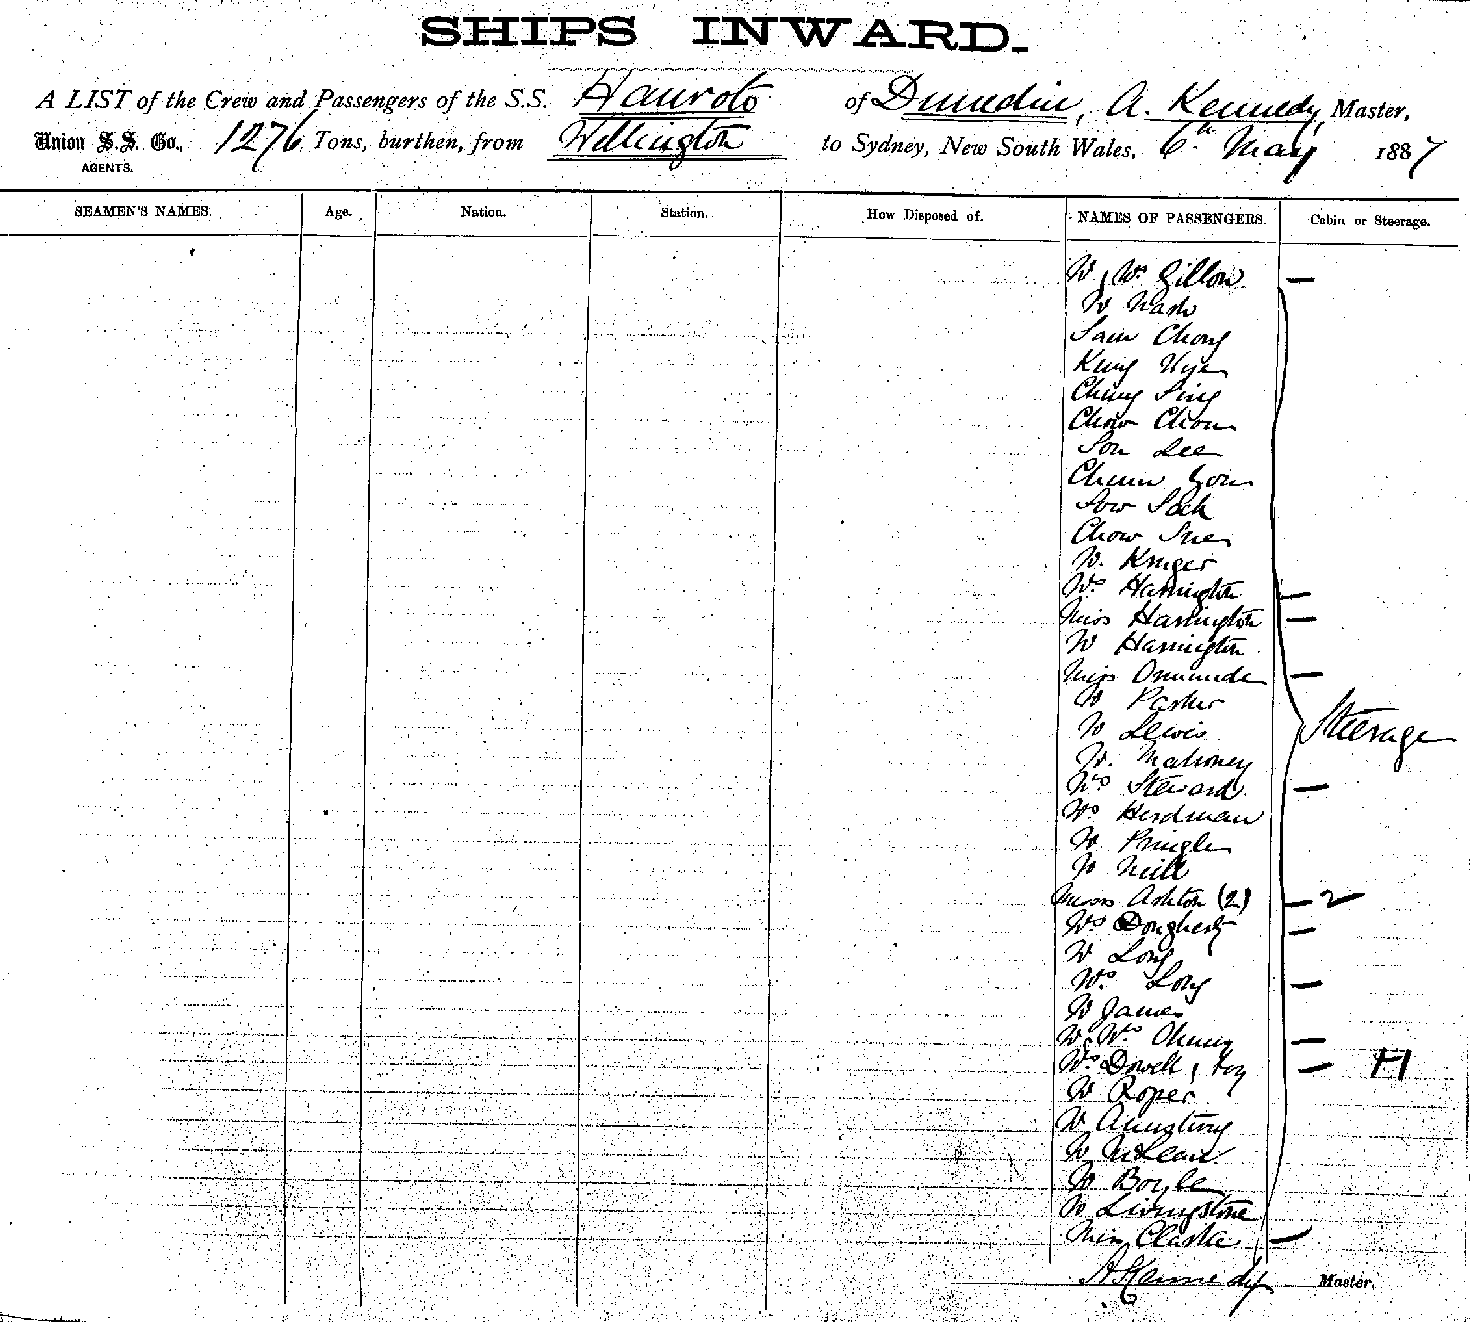 SHIPS INWARD.
A LIST of the Crew and Passengers of the S.S. Hauroto of Dunedin, A. Kennedy, Master,
Union S.S. Co., 1276 Tons, burthen, from Wellington to Sydney, New South Wales, 6th May 1887
AGENTS.
SEAMEN'S NAMES. Age. Nation. Station. How Disposed of. NAMES OF PASSENGERS. Cabin or Steerage.
Gillon —
Nash
Sam Chong
King
Ching Sing
Chow Chow
Son Lee
Chum
Sow Sack
Chow Sue
Kruger
Harrington —
Miss Harrington —
Harrington
Miss —
Parker
Lewis
Steerage
Mahoney
Steward —
Herdman
Pringle
Neill
Miss Ashton (2) — 2
Dougherty —
Long
Long —
James
—
Dowell, boy — H
Roper
Armstrong
McLean
Boyle
Livingstone
Miss Clarke —
A Kennedy Master.